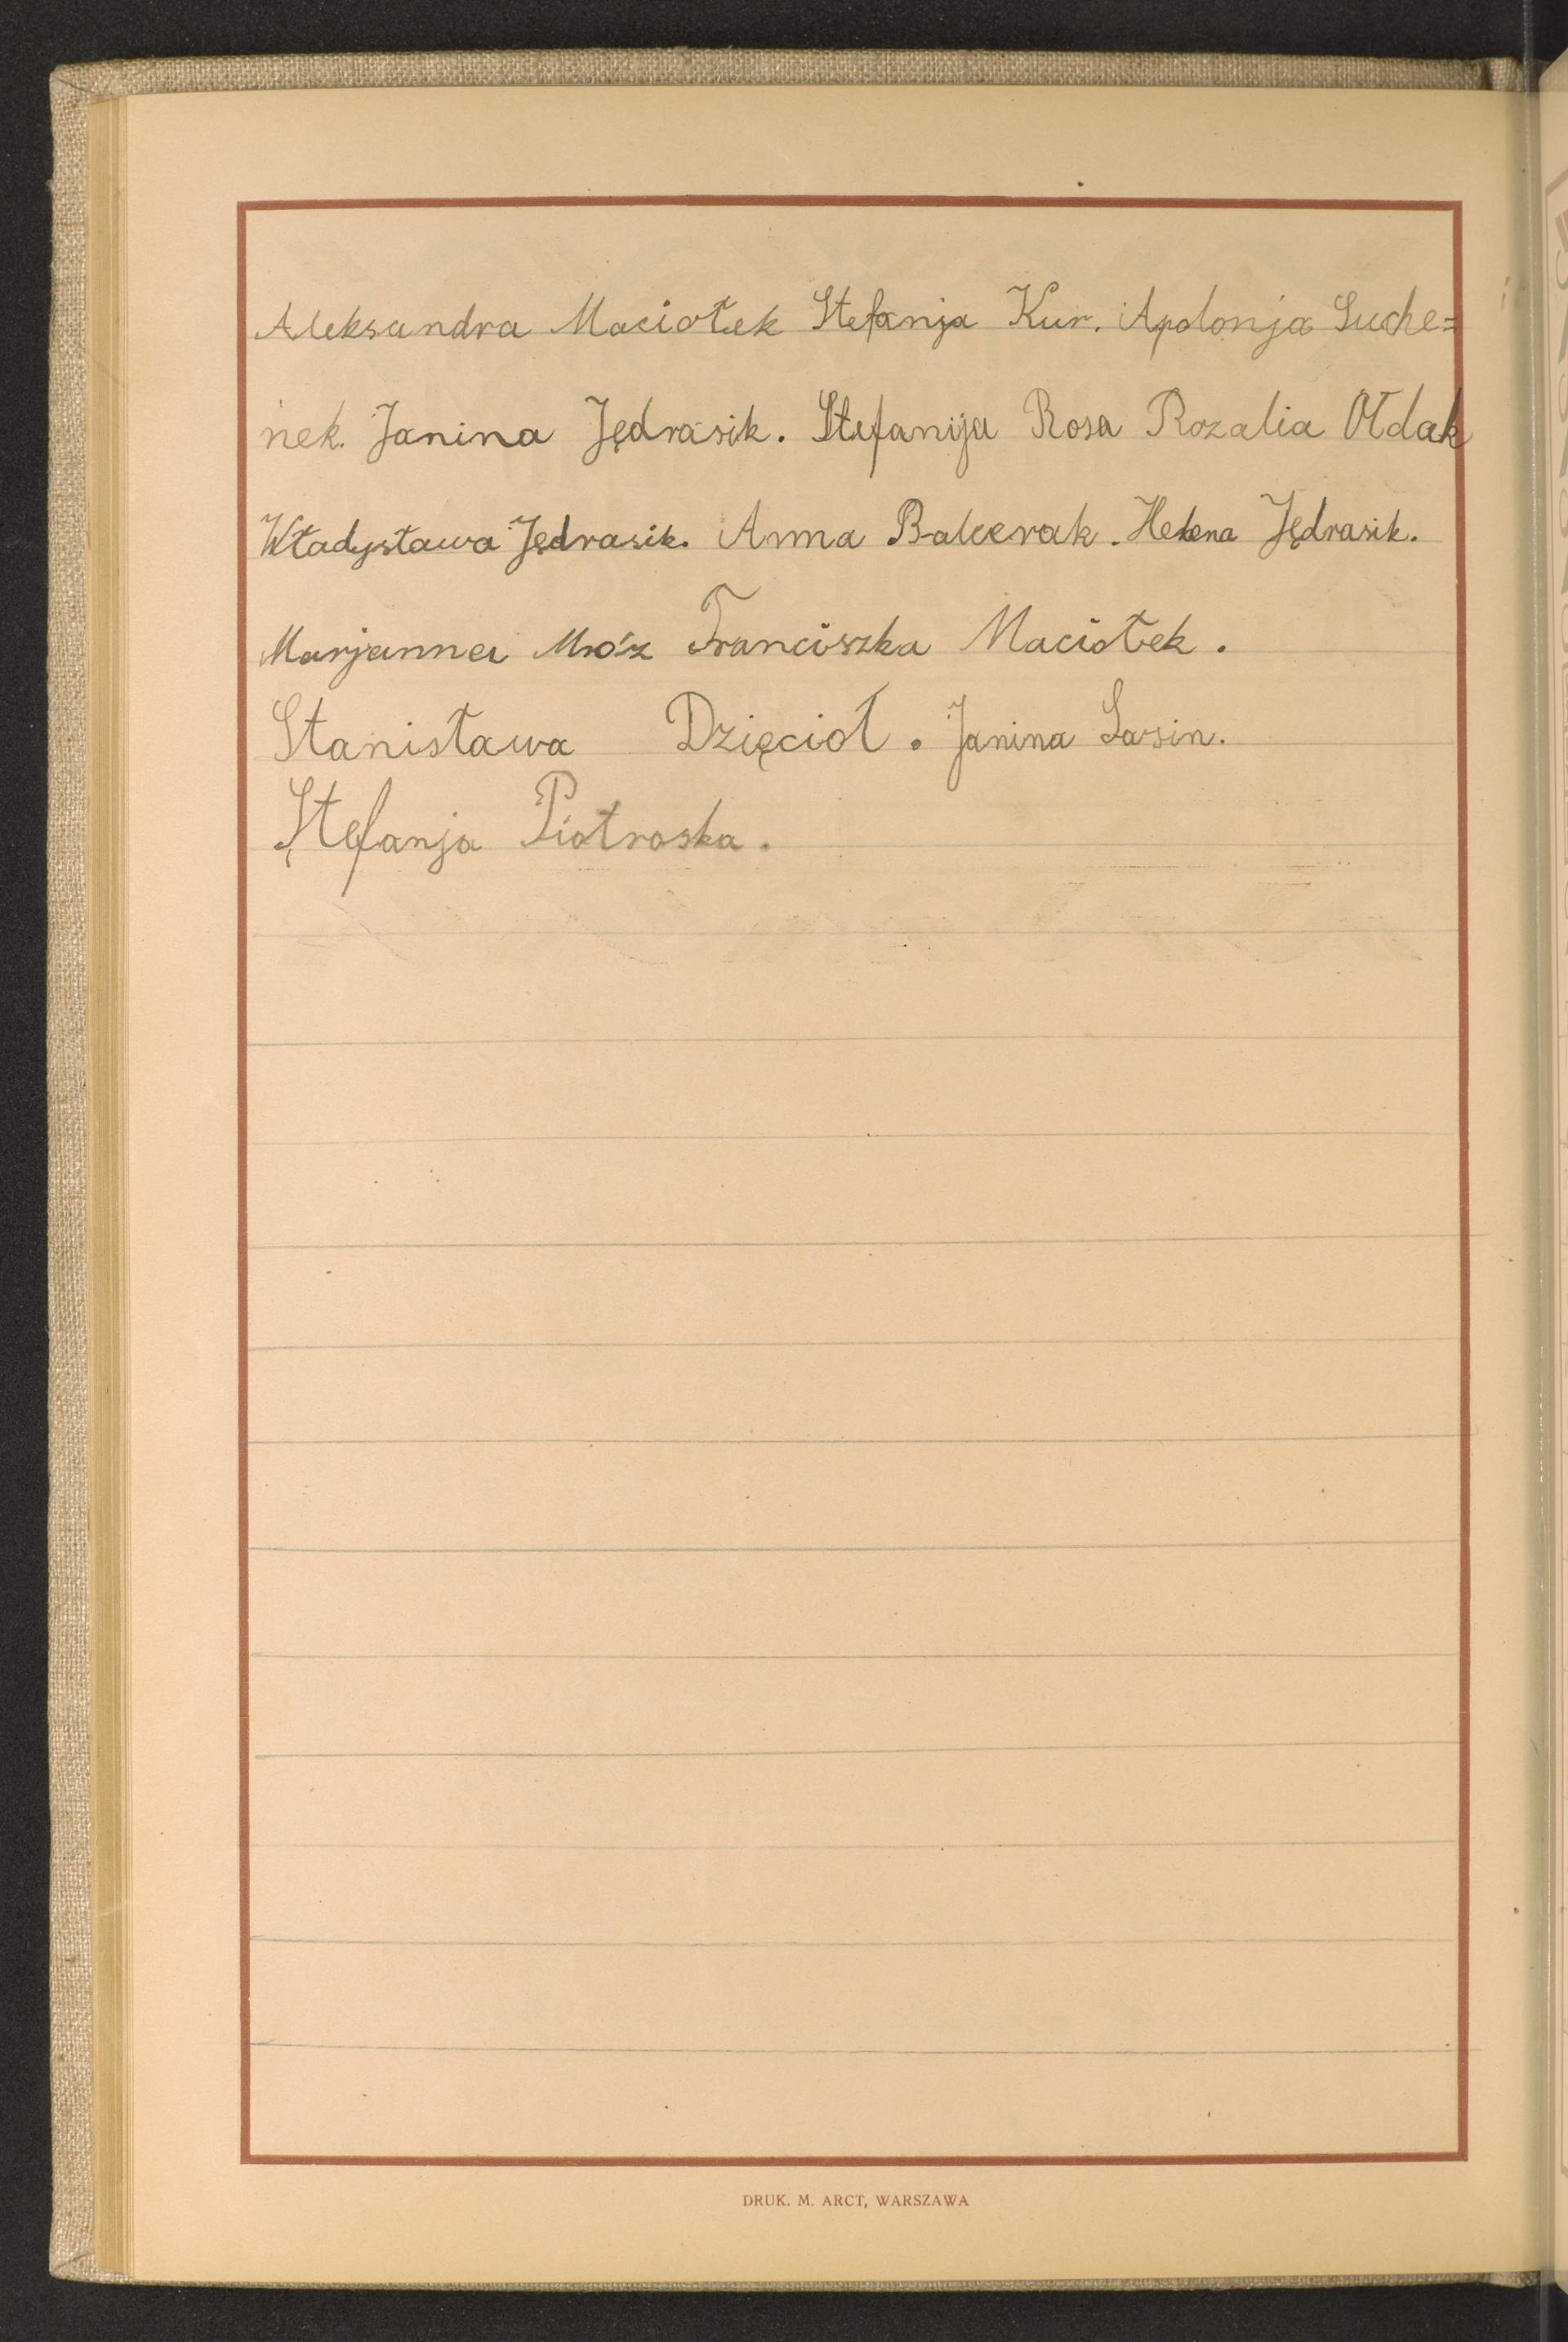 Aleksandra Maciołek Stefanja Kur. Apolonja Suche=
nek. Janina Jędrasik. Stefanija Rosa Rozalia Ołdak
Władysława Jędrasik. Anna Balcerak. Helena Jędrasik.
Marjanna Mróz Franciszka Maciołek.
Stanisława Dzięcioł. Janina Sasin.
Stefanja Piotroska.
DRUK. M. ARCT, WARSZAWA